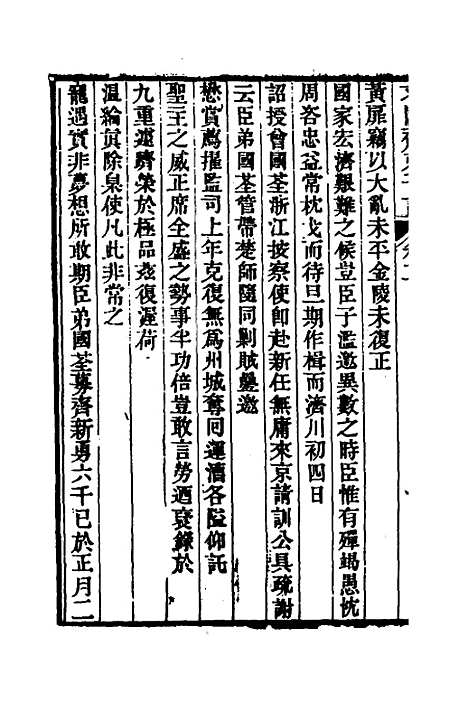 黃扉竊以大亂未平金陵未復正
國家宏濟艱難之候豈臣子濫邀異數之時臣惟有殫竭愚忱
周咨忠益常枕戈而待旦期作楫而濟川初四日
詔授曾國荃浙江按察使卽赴新任無庸來京請訓公具疏謝
云臣弟國荃管帶楚師隨同剿賊疊邀
懋賞薦擢監司上年克復無爲州城奪回運漕各隘仰託
聖主之威正席全盛之勢事半功倍豈敢言勞迺衮錄於
九重遽躋榮於極品茲復渥荷
溫綸眞除臬使凡此非常之
寵遇實非夢想所敢期臣弟國荃募齊新勇六千已於正月二